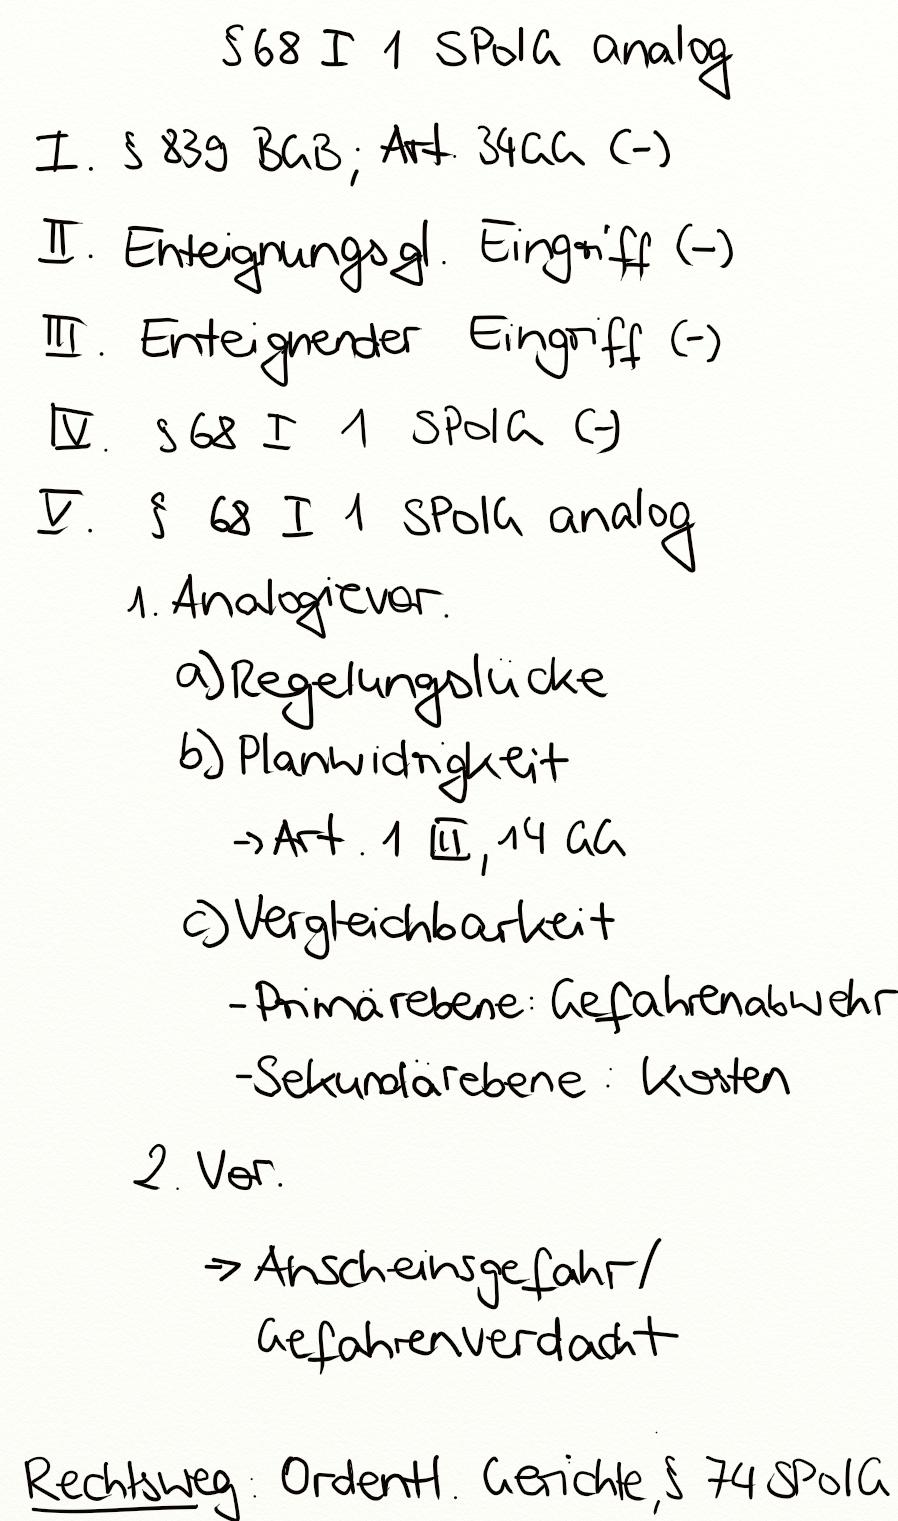 § 68 I 1 SPolG analog
I. § 839 BGB; Art. 34 GG (-)
II. Enteignungsgl. Eingriff (-)
III. Enteignender Eingriff (-)
IV. § 68 I 1 SPolG (-)
V. § 68 I 1 SPolG analog
1. Analogievor.
a) Regelungslücke
b) Planwidrigkeit
→ Art. 1 III, 14 GG
c) Vergleichbarkeit
- Primärebene: Gefahrenabwehr
- Sekundärebene: Kosten
2. Vor.
→ Anscheinsgefahr/
Gefahrenverdacht
Rechtsweg: Ordentl. Gerichte, § 74 SPolG